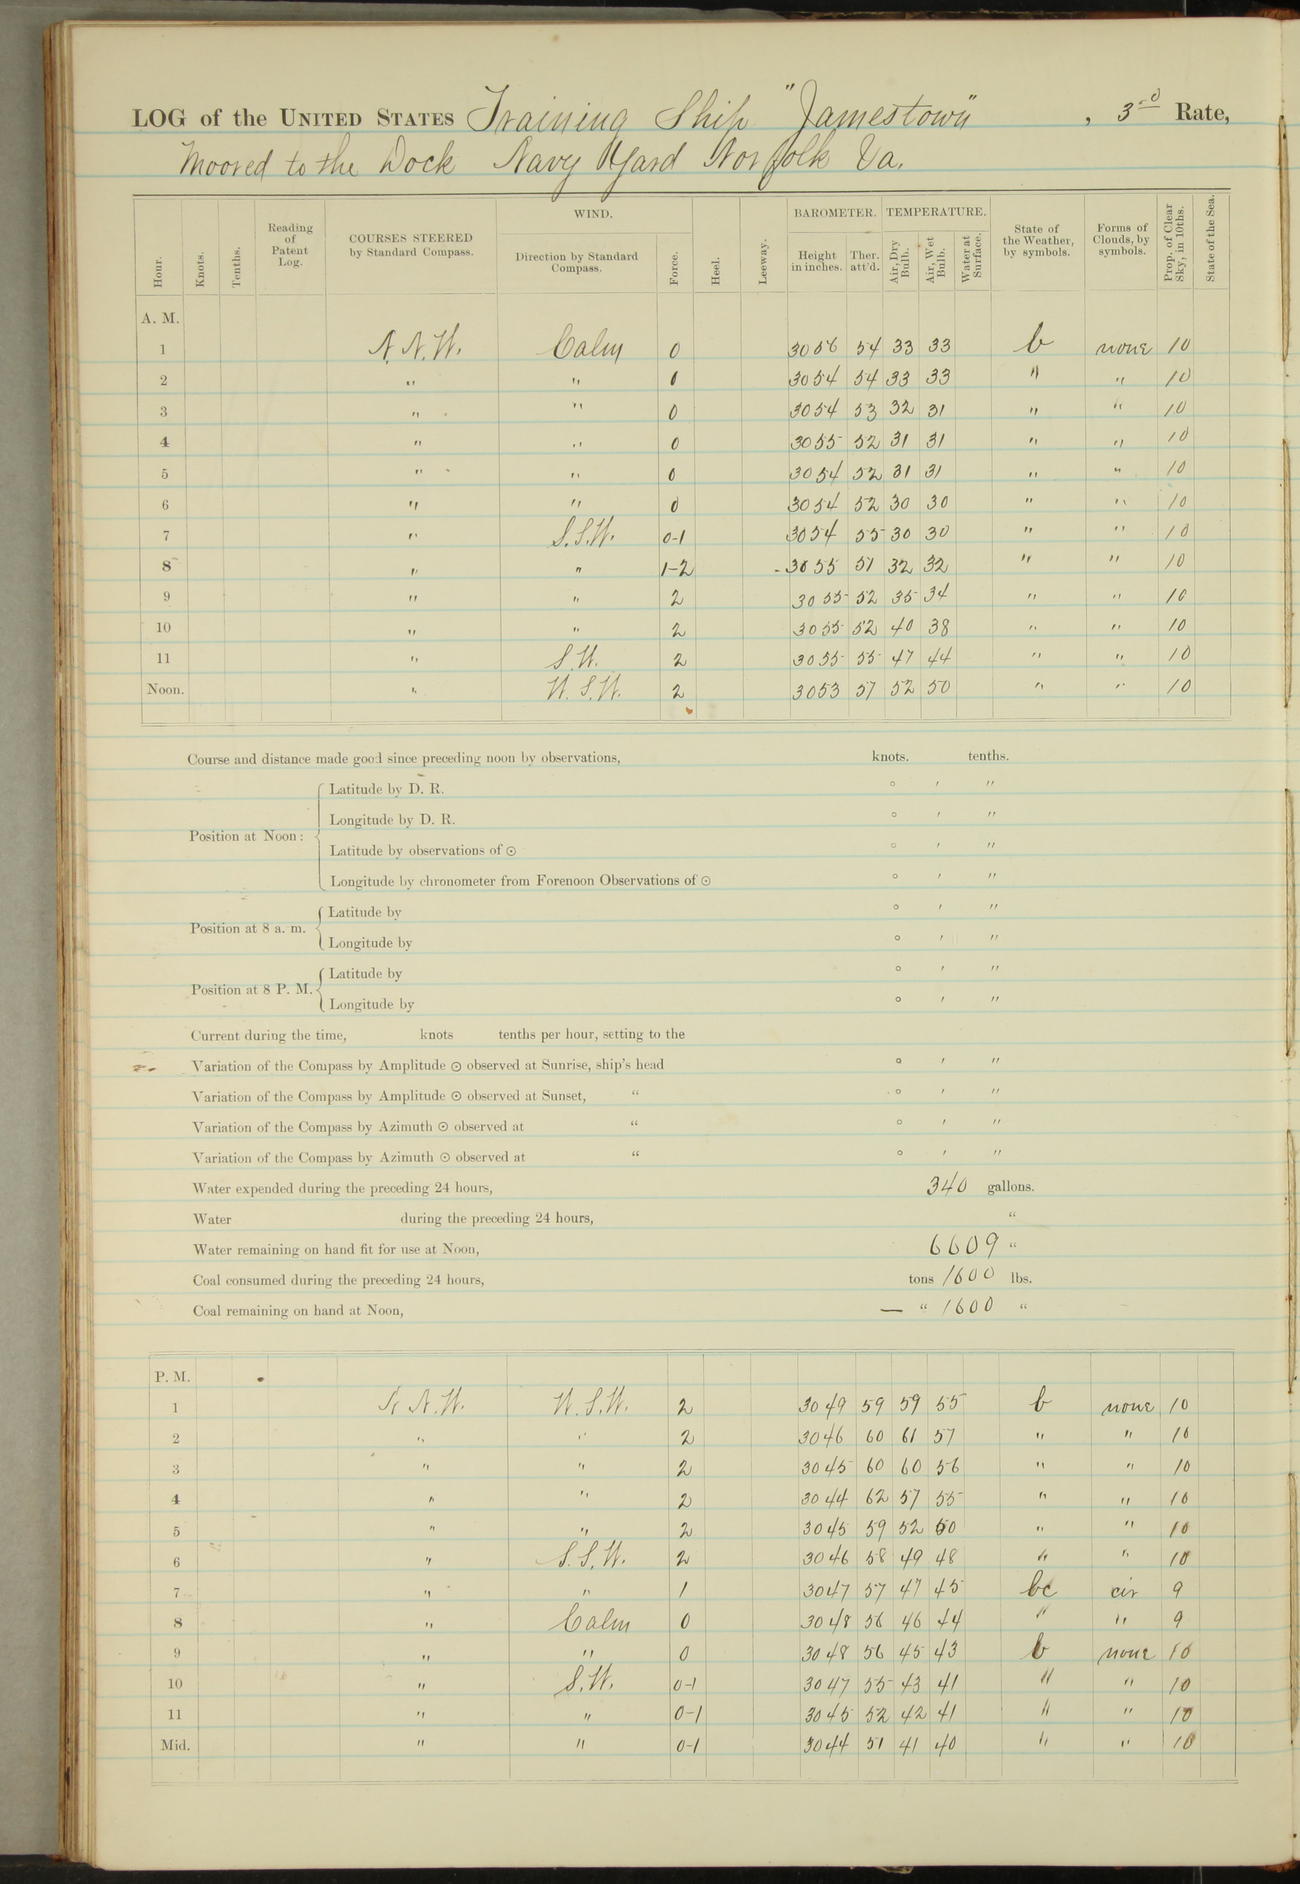 LOG of the UNITED STATES Training Ship "Jamestown", 3rd Rate,
Moored to the Dock Navy Yard Norfolk Va.
Hour. Knots. Tenths. Reading of Patent Log. COURSES STEERED by Standard Compass. WIND. Direction by Standard Compass. Force. Heel. Leeway. BAROMETER. Height in inches. Ther. att'd. TEMPERATURE. Air, Dry Bulb. Air, Wet Bulb. Water at Surface. State of the Weather, by symbols. Forms of Clouds, by symbols. Prop. of Clear Sky, in 10ths. State of the Sea.
A. M.
1 N.N.W. Calm 0 3056 54 33 33 b none 10
2 " " 0 3054 54 33 33 " " 10
3 " " 0 3054 53 32 31 " " 10
4 " " 0 3055 52 31 31 " " 10
5 " " 0 3054 52 31 31 " " 10
6 " " 0 3054 52 30 30 " " 10
7 " S.S.W. 0-1 3054 55 30 30 " " 10
8 " " 1-2 3055 51 32 32 " " 10
9 " " 2 3055 52 35 34 " " 10
10 " " 2 3055 52 40 38 " " 10
11 " S.W. 2 3055 55 47 44 " " 10
Noon. " W.S.W. 2 3053 57 52 50 " " 10
Course and distance made good since preceding noon by observations, knots. tenths.
Position at Noon: Latitude by D. R. ° ′ ″
Longitude by D. R. ° ′ ″
Latitude by observations of ⊙ ° ′ ″
Longitude by chronometer from Forenoon Observations of ⊙ ° ′ ″
Position at 8 a. m. Latitude by ° ′ ″
Longitude by ° ′ ″
Position at 8 P. M. Latitude by ° ′ ″
Longitude by ° ′ ″
Current during the time, knots tenths per hour, setting to the
Variation of the Compass by Amplitude ⊙ observed at Sunrise, ship's head ° ′ ″
Variation of the Compass by Amplitude ⊙ observed at Sunset, " ° ′ ″
Variation of the Compass by Azimuth ⊙ observed at " ° ′ ″
Variation of the Compass by Azimuth ⊙ observed at " ° ′ ″
Water expended during the preceding 24 hours, 340 gallons.
Water during the preceding 24 hours, "
Water remaining on hand fit for use at Noon, 6609 "
Coal consumed during the preceding 24 hours, tons 1600 lbs.
Coal remaining on hand at Noon, — " 1600 "
P. M.
1 N.N.W. W.S.W. 2 3049 59 59 55 b none 10
2 " " 2 3046 60 61 57 " " 10
3 " " 2 3045 60 60 56 " " 10
4 " " 2 3044 62 57 55 " " 10
5 " " 2 3045 59 52 50 " " 10
6 " S.S.W. 2 3046 58 49 48 " " 10
7 " " 1 3047 57 47 45 bc cir 9
8 " Calm 0 3048 56 46 44 " " 9
9 " " 0 3048 56 45 43 b none 10
10 " S.W. 0-1 3047 55 43 41 " " 10
11 " " 0-1 3045 52 42 41 " " 10
Mid. " " 0-1 3044 51 41 40 " " 10